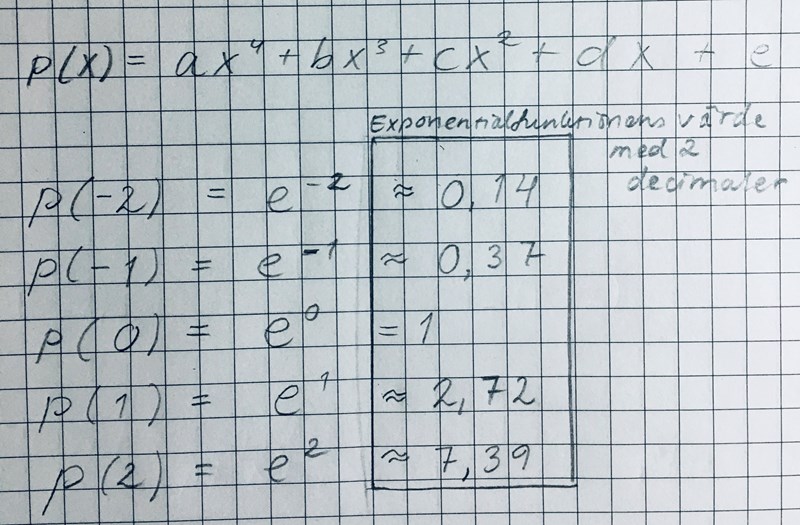 p(x) = ax⁴ + bx³ + cx² + dx + e
Exponentialfunktionens värde
med 2
decimaler
p(-2) = e⁻² ≈ 0,14
p(-1) = e⁻¹ ≈ 0,37
p(0) = e⁰ = 1
p(1) = e¹ ≈ 2,72
p(2) = e² ≈ 7,39